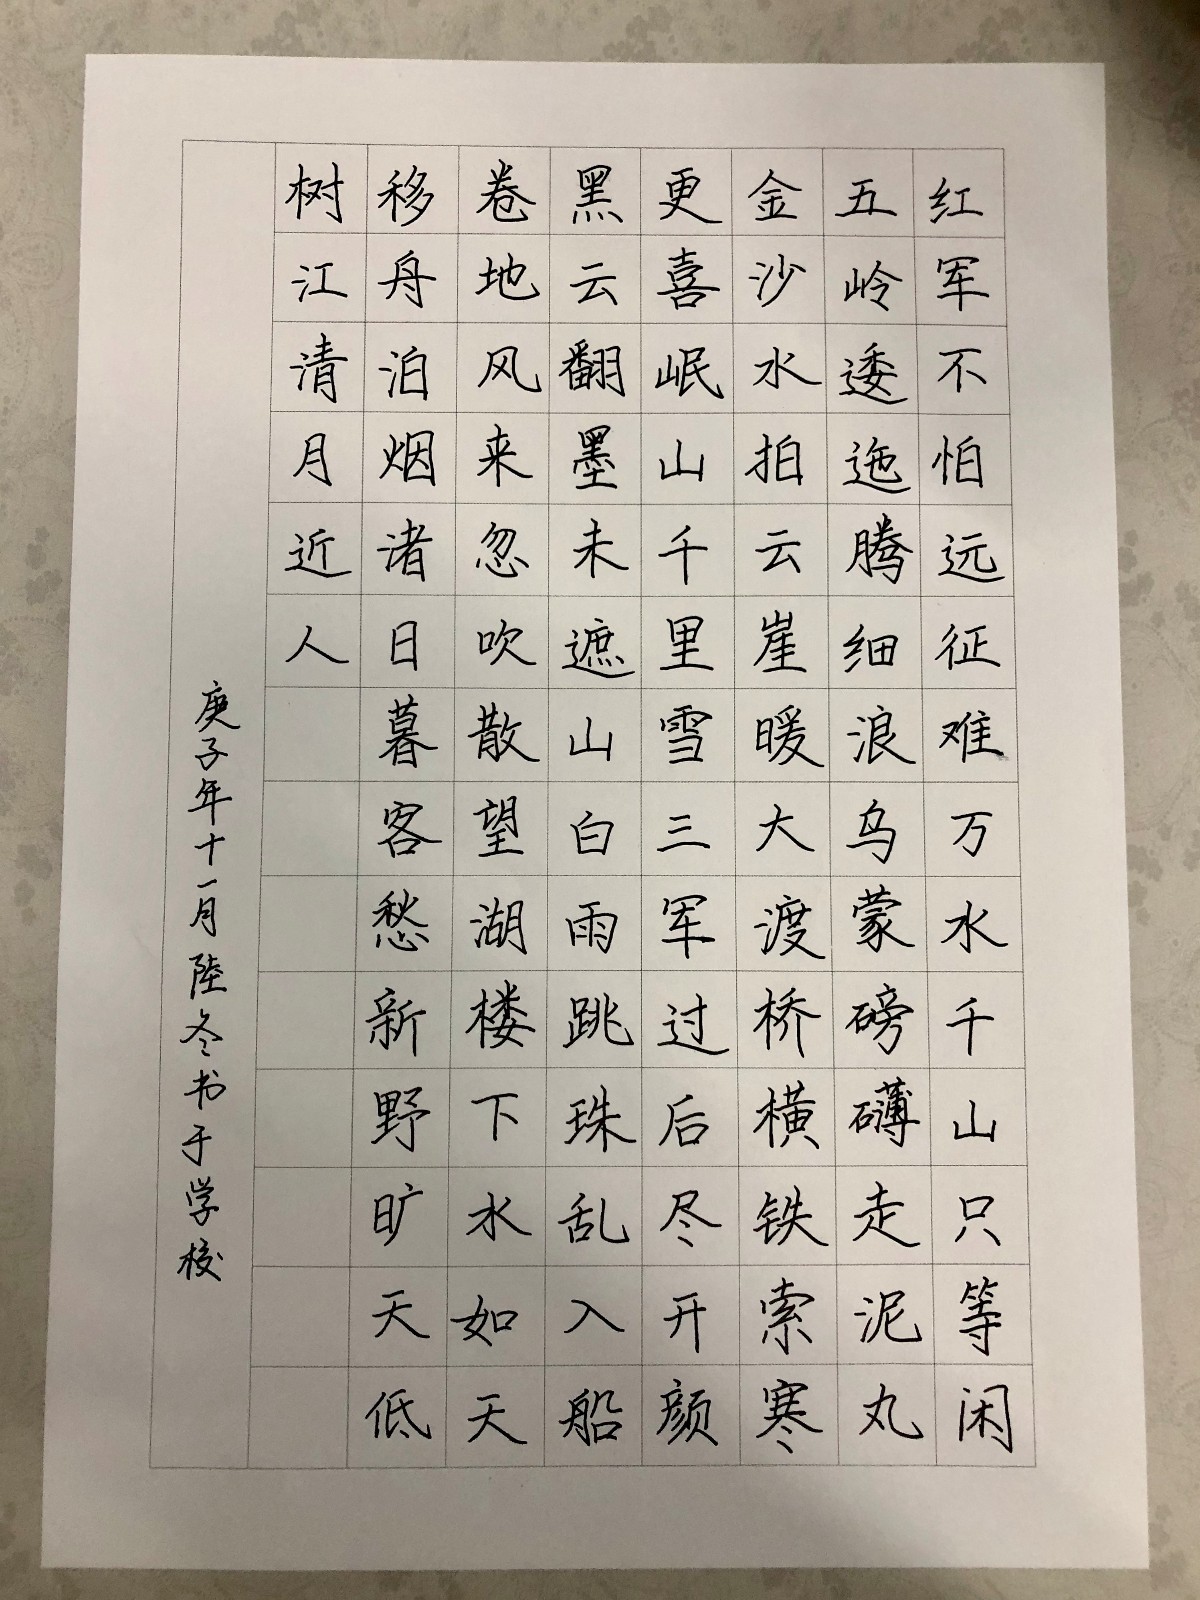 红军不怕远征难万水千山只等闲
五岭逶迤腾细浪乌蒙磅礴走泥丸
金沙水拍云崖暖大渡桥横铁索寒
更喜岷山千里雪三军过后尽开颜
黑云翻墨未遮山白雨跳珠乱入船
卷地风来忽吹散望湖楼下水如天
移舟泊烟渚日暮客愁新野旷天低
树江清月近人
庚子年十一月陸冬书于学校